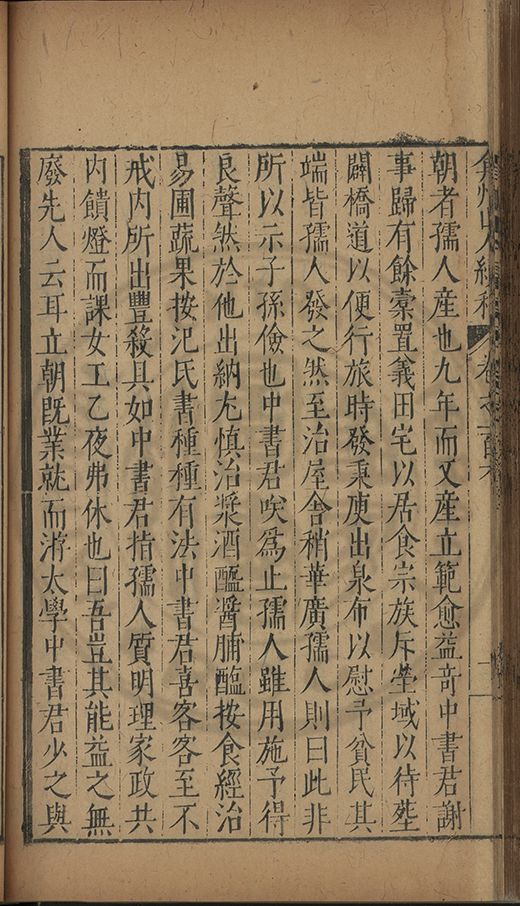 弇州山人續稿 卷之一百六
朝者孺人產也九年而又產立範愈益奇中書君謝
事歸有餘橐置義田宅以居食宗族斥塋域以待塟
闢橋道以便行旅時發秉庾出泉布以慰予貧民其
端皆孺人發之然至治屋舍稍華廣孺人則曰此非
所以示子孫儉也中書君唉爲止孺人雖用施予得
良聲然於他出納尤慎治漿酒醯醬脯醢按食經治
易圃蔬果按氾氏書種種有法中書君喜客客至不
戒内所出豐殺具如中書君指孺人質明理家政共
内饋燈而課女工乙夜弗休也曰吾豈其能益之無
廢先人云耳立朝既業就而游太學中書君少之與